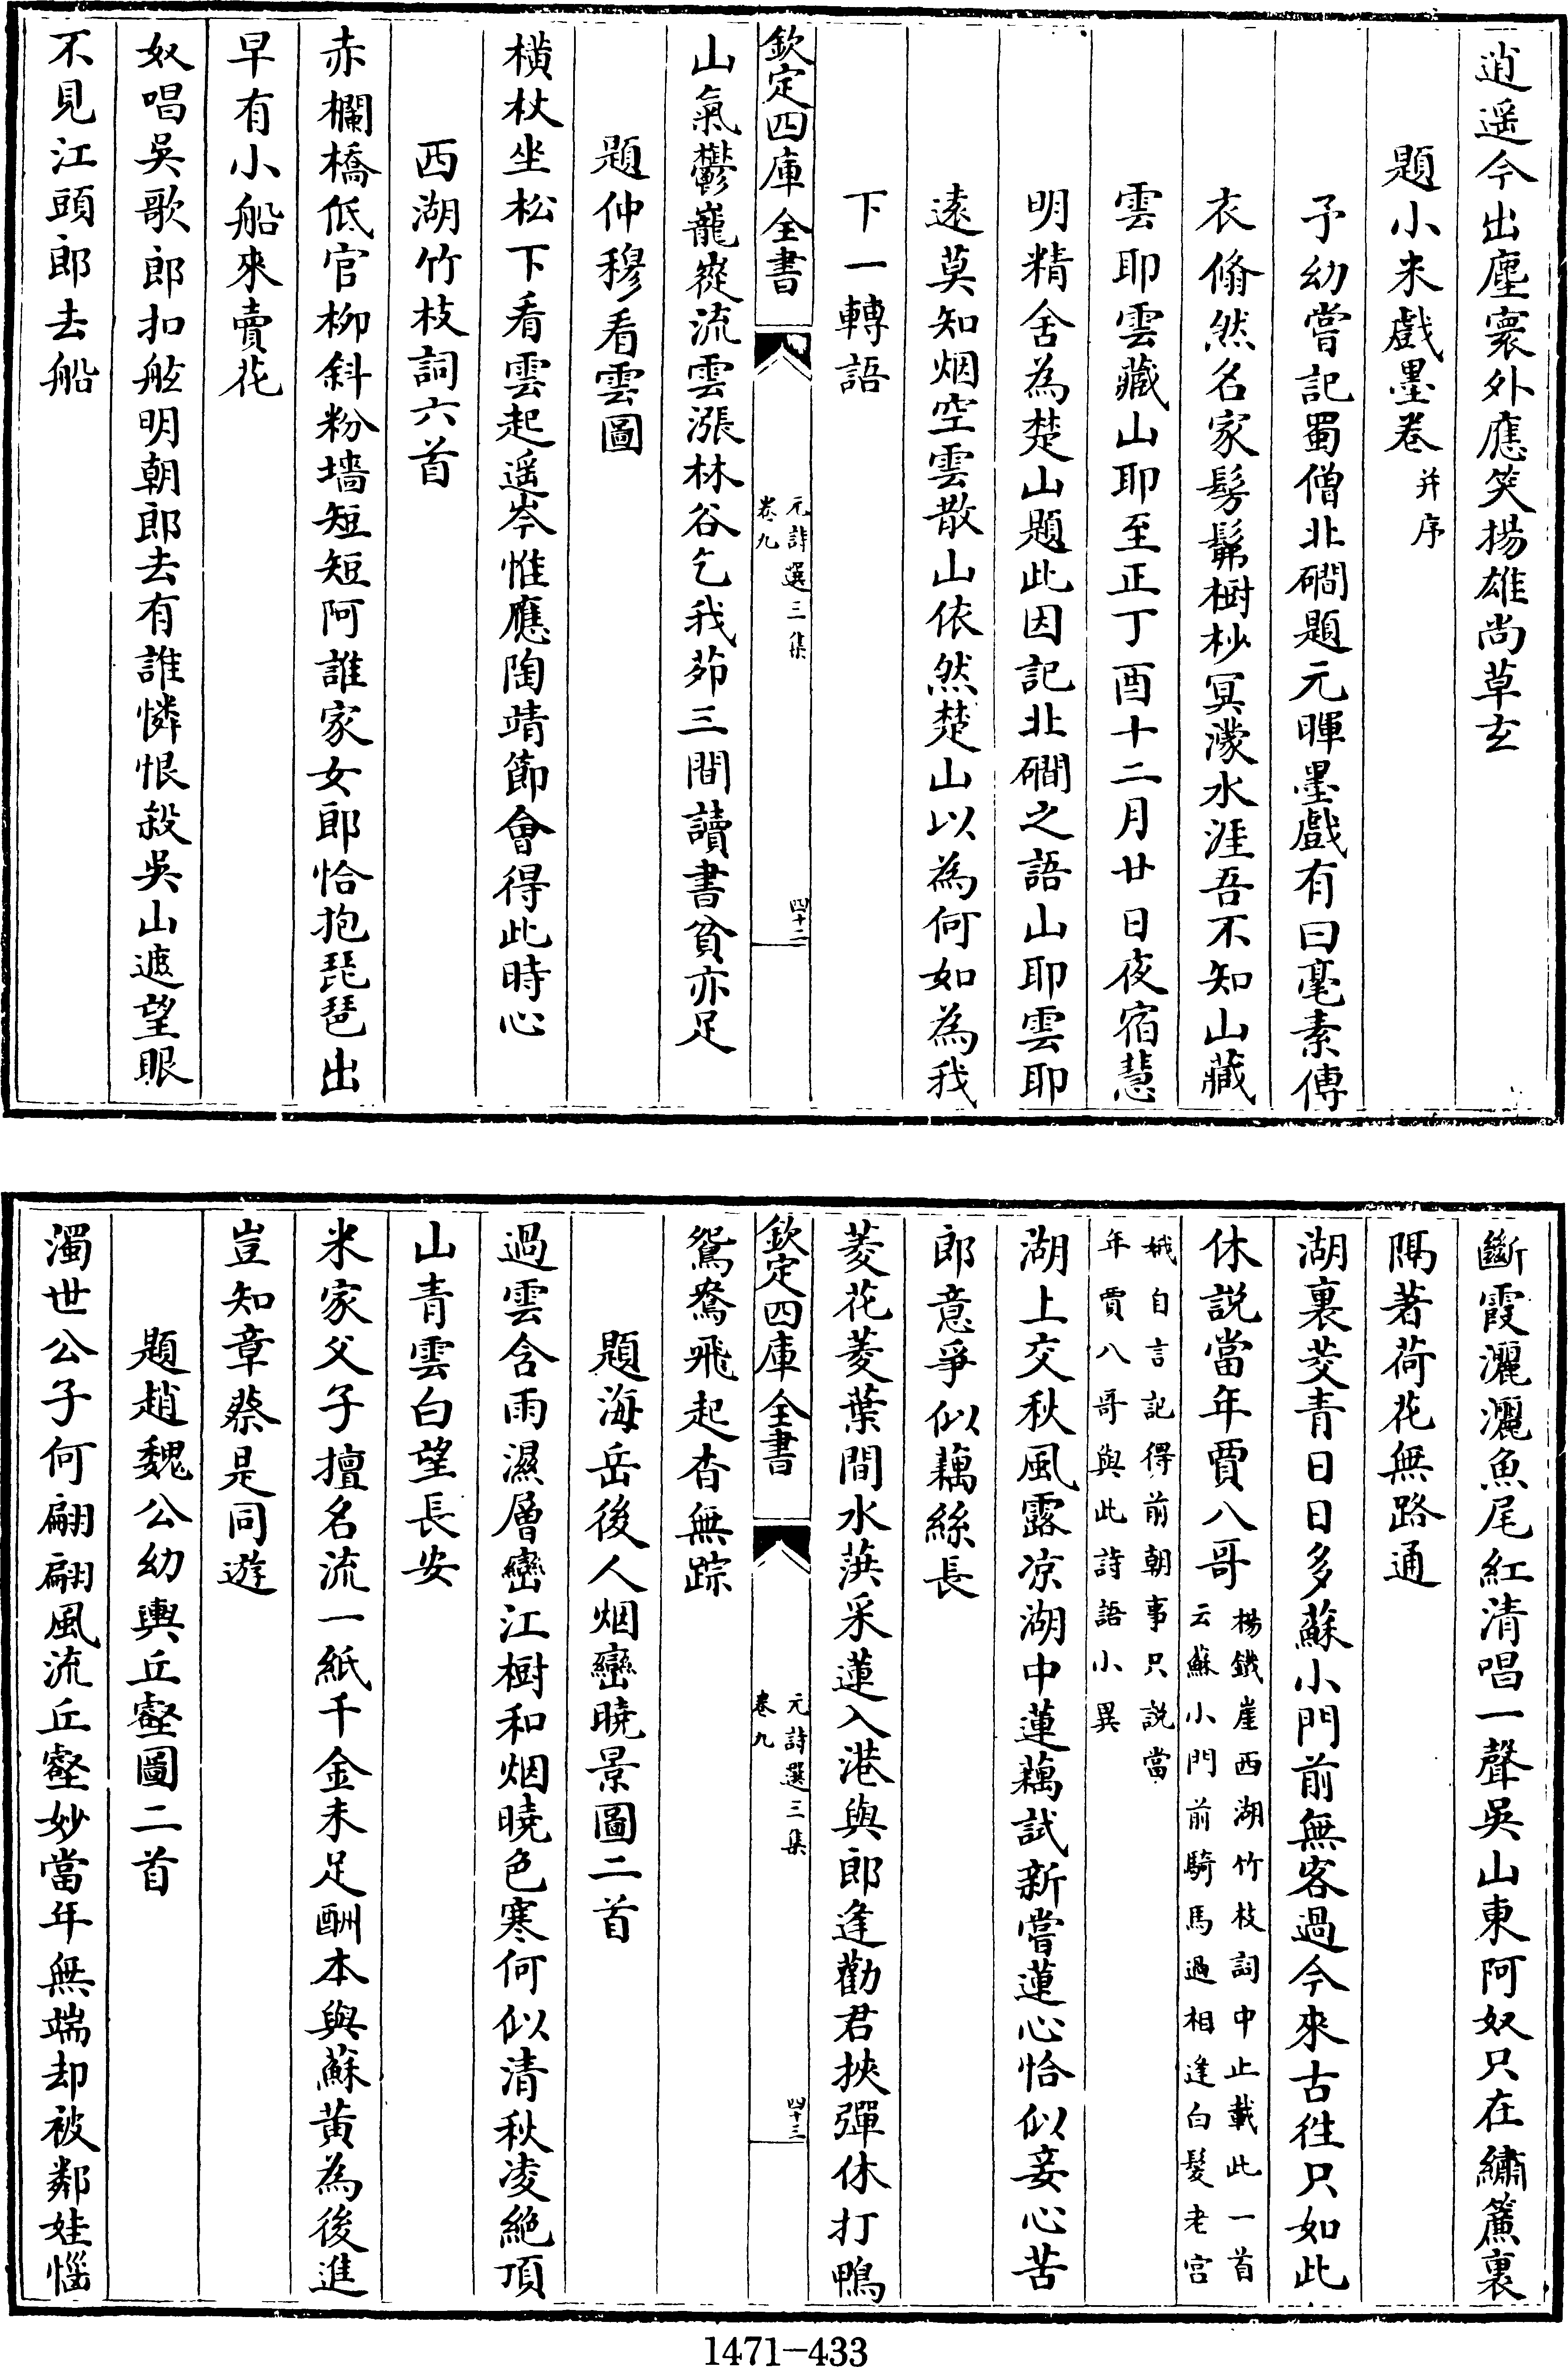 逍遥今出塵寰外應笑揚雄尚草玄
題小米戲墨卷并序
予幼嘗記蜀僧北磵題元暉墨戲有曰毫素傳
衣翛然名家髣髴樹杪冥濛水涯吾不知山藏
雲耶雲藏山耶至正丁酉十二月廿日夜宿慧
明精舍為楚山題此因記北磵之語山耶雲耶
遠莫知烟空雲散山依然楚山以為何如為我
下一轉語
欽定四庫全書
元詩選三集
卷九
四十二
山氣鬱巃嵸流雲漲林谷乞我茆三間讀書貧亦足
題仲穆看雲圖
橫杖坐松下看雲起遥岑惟應陶靖節會得此時心
西湖竹枝詞六首
赤欄橋低官柳斜粉墻短短阿誰家女郎恰抱琵琶出
早有小船來賣花
奴唱吳歌郎扣舷明朝郎去有誰憐恨殺吳山遮望眼
不見江頭郎去船
斷霞灑灑魚尾紅清唱一聲吳山東阿奴只在繡簾裏
隔著荷花無路通
湖裏茭青日日多蘇小門前無客過今來古徃只如此
休説當年賈八哥
楊鐵崖西湖竹枝詞中止載此一首
云蘇小門前騎馬過相逢白髮老宫
娥自言記得前朝事只説當
年賈八哥與此詩語小異
湖上交秋風露凉湖中蓮藕試新嘗蓮心恰似妾心苦
郎意爭似藕絲長
菱花菱葉間水葓采蓮入港與郎逢勸君挾彈休打鴨
欽定四庫全書
元詩選三集
卷九
四十三
鴛鴦飛起杳無踪
題海岳後人烟巒曉景圖二首
過雲含雨濕層巒江樹和烟曉色寒何似清秋凌絶頂
山青雲白望長安
米家父子擅名流一紙千金未足酬本與蘇黃為後進
豈知章蔡是同遊
題趙魏公幼輿丘壑圖二首
濁世公子何翩翩風流丘壑妙當年無端却被鄰娃惱
1471-433